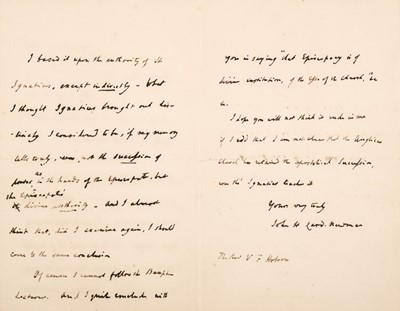 I based it upon the authority of St
Ignatius, except indirectly - What
I thought Ignatius brought out dis-
-tinctly I considered to be, if my memory
tells truly, not the succession of
power in the hands of the Episcopate, but
the Episcopate
its divine authority - And I almost
think that, did I examine again, I should
come to the same conclusion
Of course I cannot follow the Bampton
Lectures. And I quite conclude with
you in saying "that Episcopacy is of
divine institution, of the of the Church," &c
&c.
I hope you will not think it rude in me
if I add that I am not clear that the Anglican
church has retained the Apostolical Succession,
even tho' Ignatius teaches it
Yours very truly
John H Card. Newman
The Revd V F Hobson